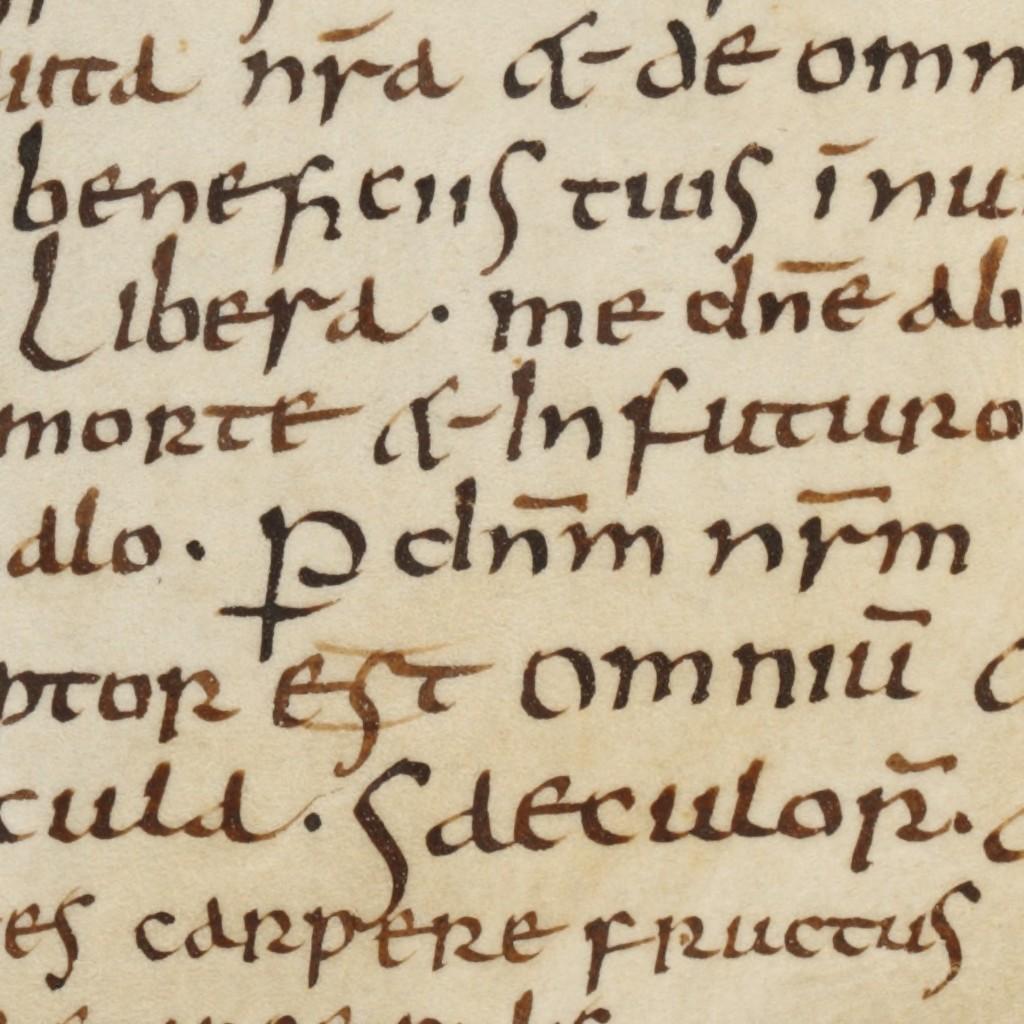 uita nr̄a & de omn
beneficiis tuis īnu
Libera · me dn̄e ab
morte & In futuro
alo · P̱ dn̄m nr̄m
ptor est omniū
cula · Saeculor̄ ·
es carpere fructus